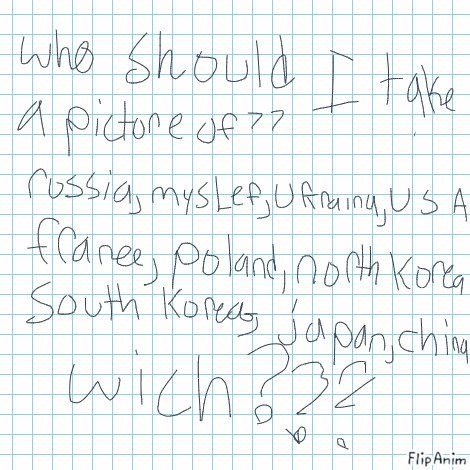 who should I take
a picture of??
russia, mysLef, Ukraina, USA
france, poland, north Korea
south Korea, japan, china
wich???
FlipAnim